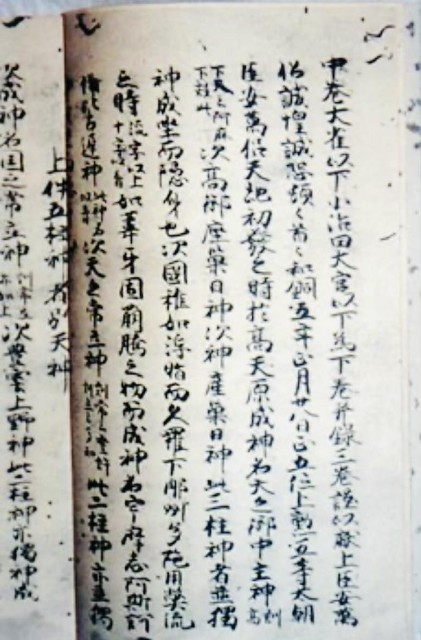 中卷大雀以下小治田大宮以下爲下卷并録三卷謹以獻上臣安萬
侶誠惶誠恐頓々首々和銅五年正月廿八日正五位上勲五等太朝
臣安萬侶天地初發之時於高天原成神名天之御中主神訓高
下天云阿麻下效此次高御産巣日神次神産巣日神此三柱神者並獨
神成坐而隠身也次國稚如浮脂而久羅下那州多陀用弊流
之時流字以上十字以音如葦牙因萌騰之物而成神名宇摩志阿斯訶
備比古遅神次天之常立神此二柱神亦並獨
上件五柱神者別天神
次成神名国之常立神次豊雲上野神此二柱神亦獨神成